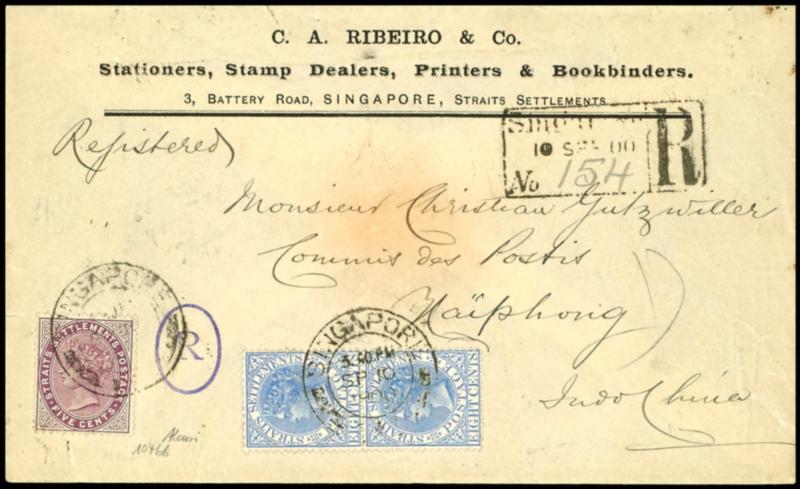 C. A. RIBEIRO & Co.
Stationers, Stamp Dealers, Printers & Bookbinders.
3, BATTERY ROAD, SINGAPORE, STRAITS SETTLEMENTS
Registered
10 00
No 154
R
Monsieur Christian Gutzwiller
Commis des Postis
Haïphong
Indo China
SINGAPORE
R
STRAITS SETTLEMENTS POSTAGE
FIVE CENTS
SINGAPORE
3.40 PM
SP 10
1900
STRAITS SETTLEMENTS
EIGHT CENTS
STRAITS SETTLEMENTS POSTAGE
EIGHT CENTS
10466